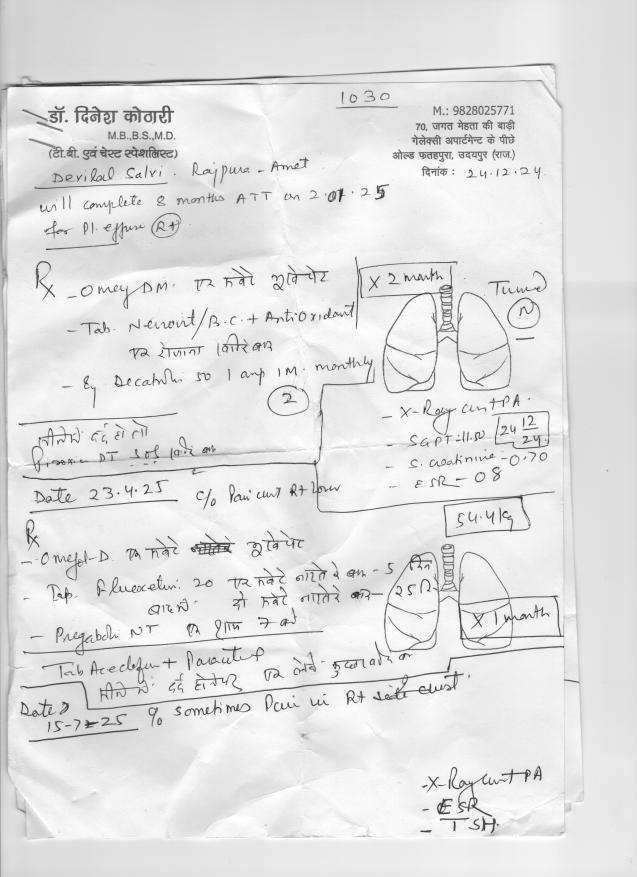 1030
डॉ. दिनेश कोठारी
M.B.,B.S.,M.D.
(टी.बी. एवं चेस्ट स्पेशलिस्ट)
M.: 9828025771
70, जगत मेहता की बाड़ी
गेलेक्सी अपार्टमेन्ट के पीछे
ओल्ड फतहपुरा, उदयपुर (राज.)
दिनांक : 24.12.24
Devilal Salvi. Rajpura - Amet
will complete 8 months ATT on 2.01.25
for Pl. effusion Rt
Rx - Omey DM. एक सवेरे भूखे पेट
X 2 month
- Tab. Neuroit/B.C. + AntiOxidant
एक रोजाना
- Decabolin 50 1 amp IM. monthly
2
N
- X-Ray chest PA.
- SGPT 24/12/24
- S. creatinine - 0.70
- ESR - 08
सीने में दर्द हो तो
DT SOS
Date 23.4.25 c/o Pain chest Rt lower
54.4kg
Rx
- Omezol-D. एक सवेरे भूखे पेट
- Tab. Fluoxetin. 20 एक सवेरे नाश्ते के बाद - 5 दिन
बाद में दो सवेरे नाश्ते के बाद - 25 दि
- Pregabalin NT एक शाम 7 बजे
X 1 month
Tab Aceclofen + Paracetamol
सीने में दर्द होने पर एक
Date 15-7-25 c/o sometimes Pain in Rt side chest.
- X-Ray chest PA
- ESR
- TSH.